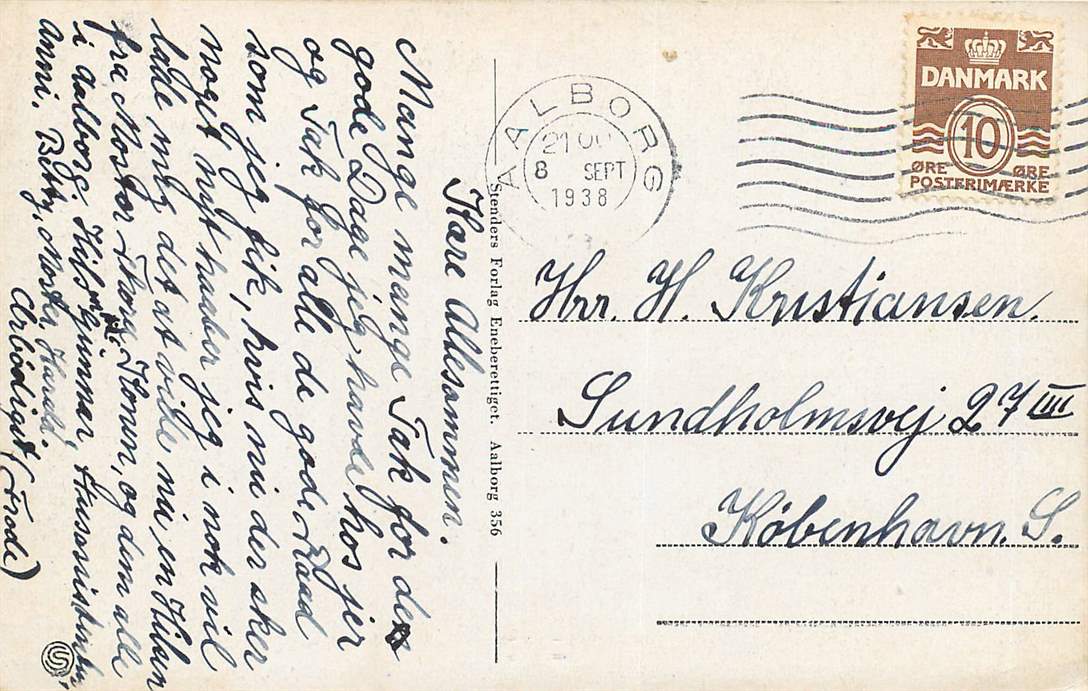 Kære Allesammen.
Mange mange Tak for de
gode Dage jeg havde hos jer
og Tak for alle de gode Raad
som jeg fik, hvis nu der sker
nogt nyt haaber jeg i nok vil
lade mig det at vide nu en Hilsen
fra Moster Thora, Homin, og dem alle
i Aalborg. Hils Gunnar,
Anni, Bitty, Moster, Harald.
Ærbødigst (Frode)
Stenders Forlag Eneberettiget. Aalborg 356
AALBORG
21 00
8 SEPT
1938
DANMARK
10
ØRE ØRE
POSTFRIMÆRKE
Hrr. H. Kristiansen.
Sundholmsvej 27 III
København. S.